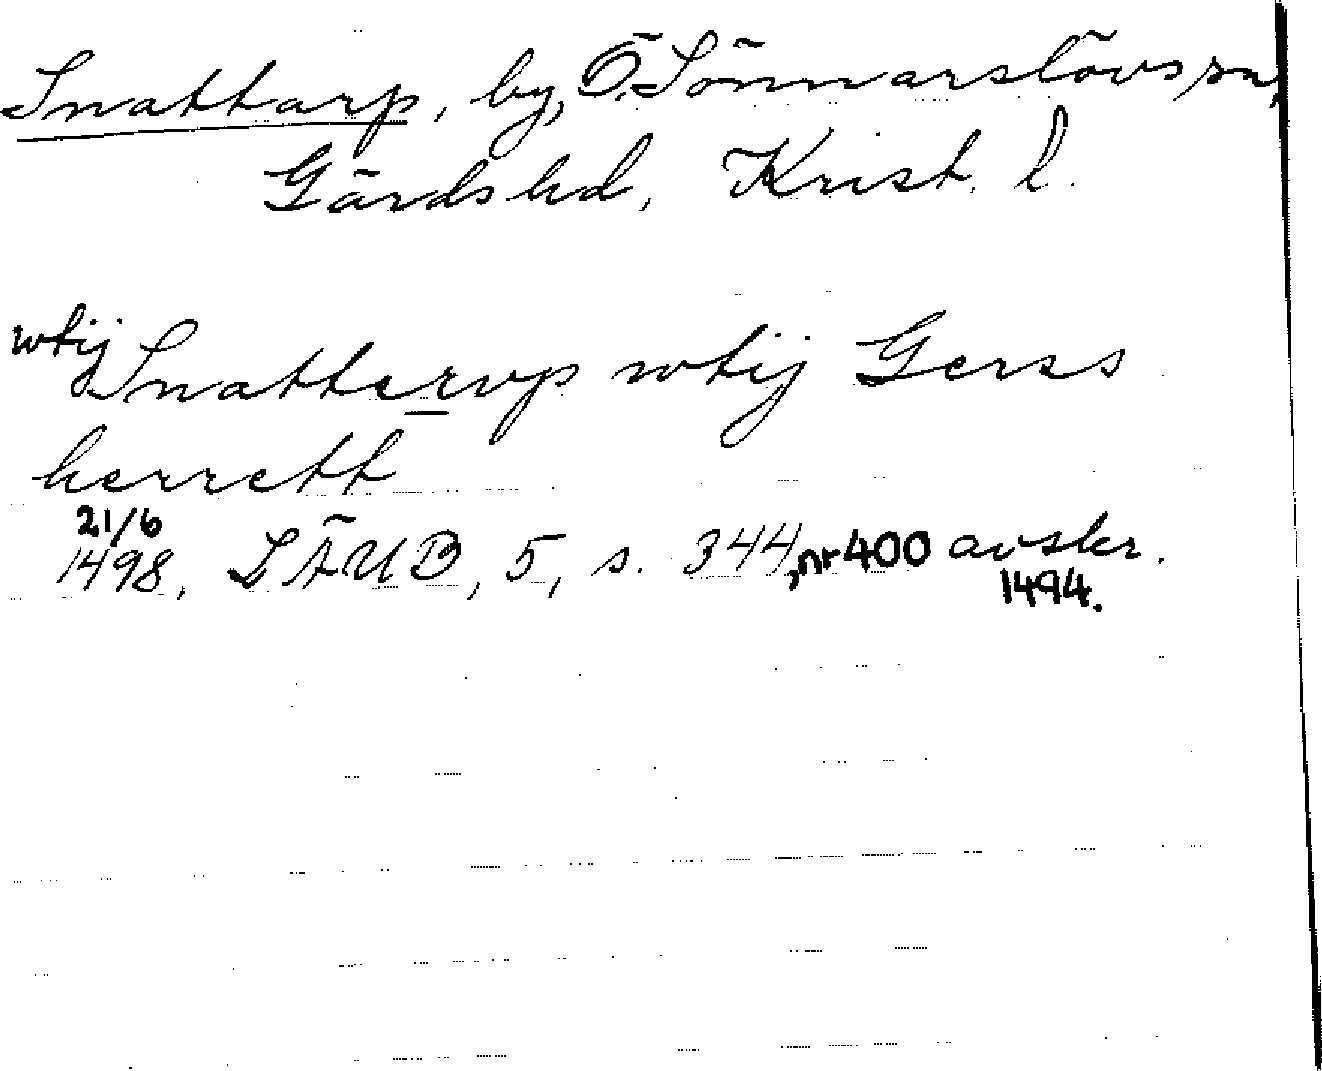 Snattarp, by, Ö. Sönnarslövs sn,
Gärds hd, Krist. l.
wtij Snatterup wtij Gerss
herrett
21/6
1498, LÄUB, 5, s. 344, nr 400 avskr.
1494.